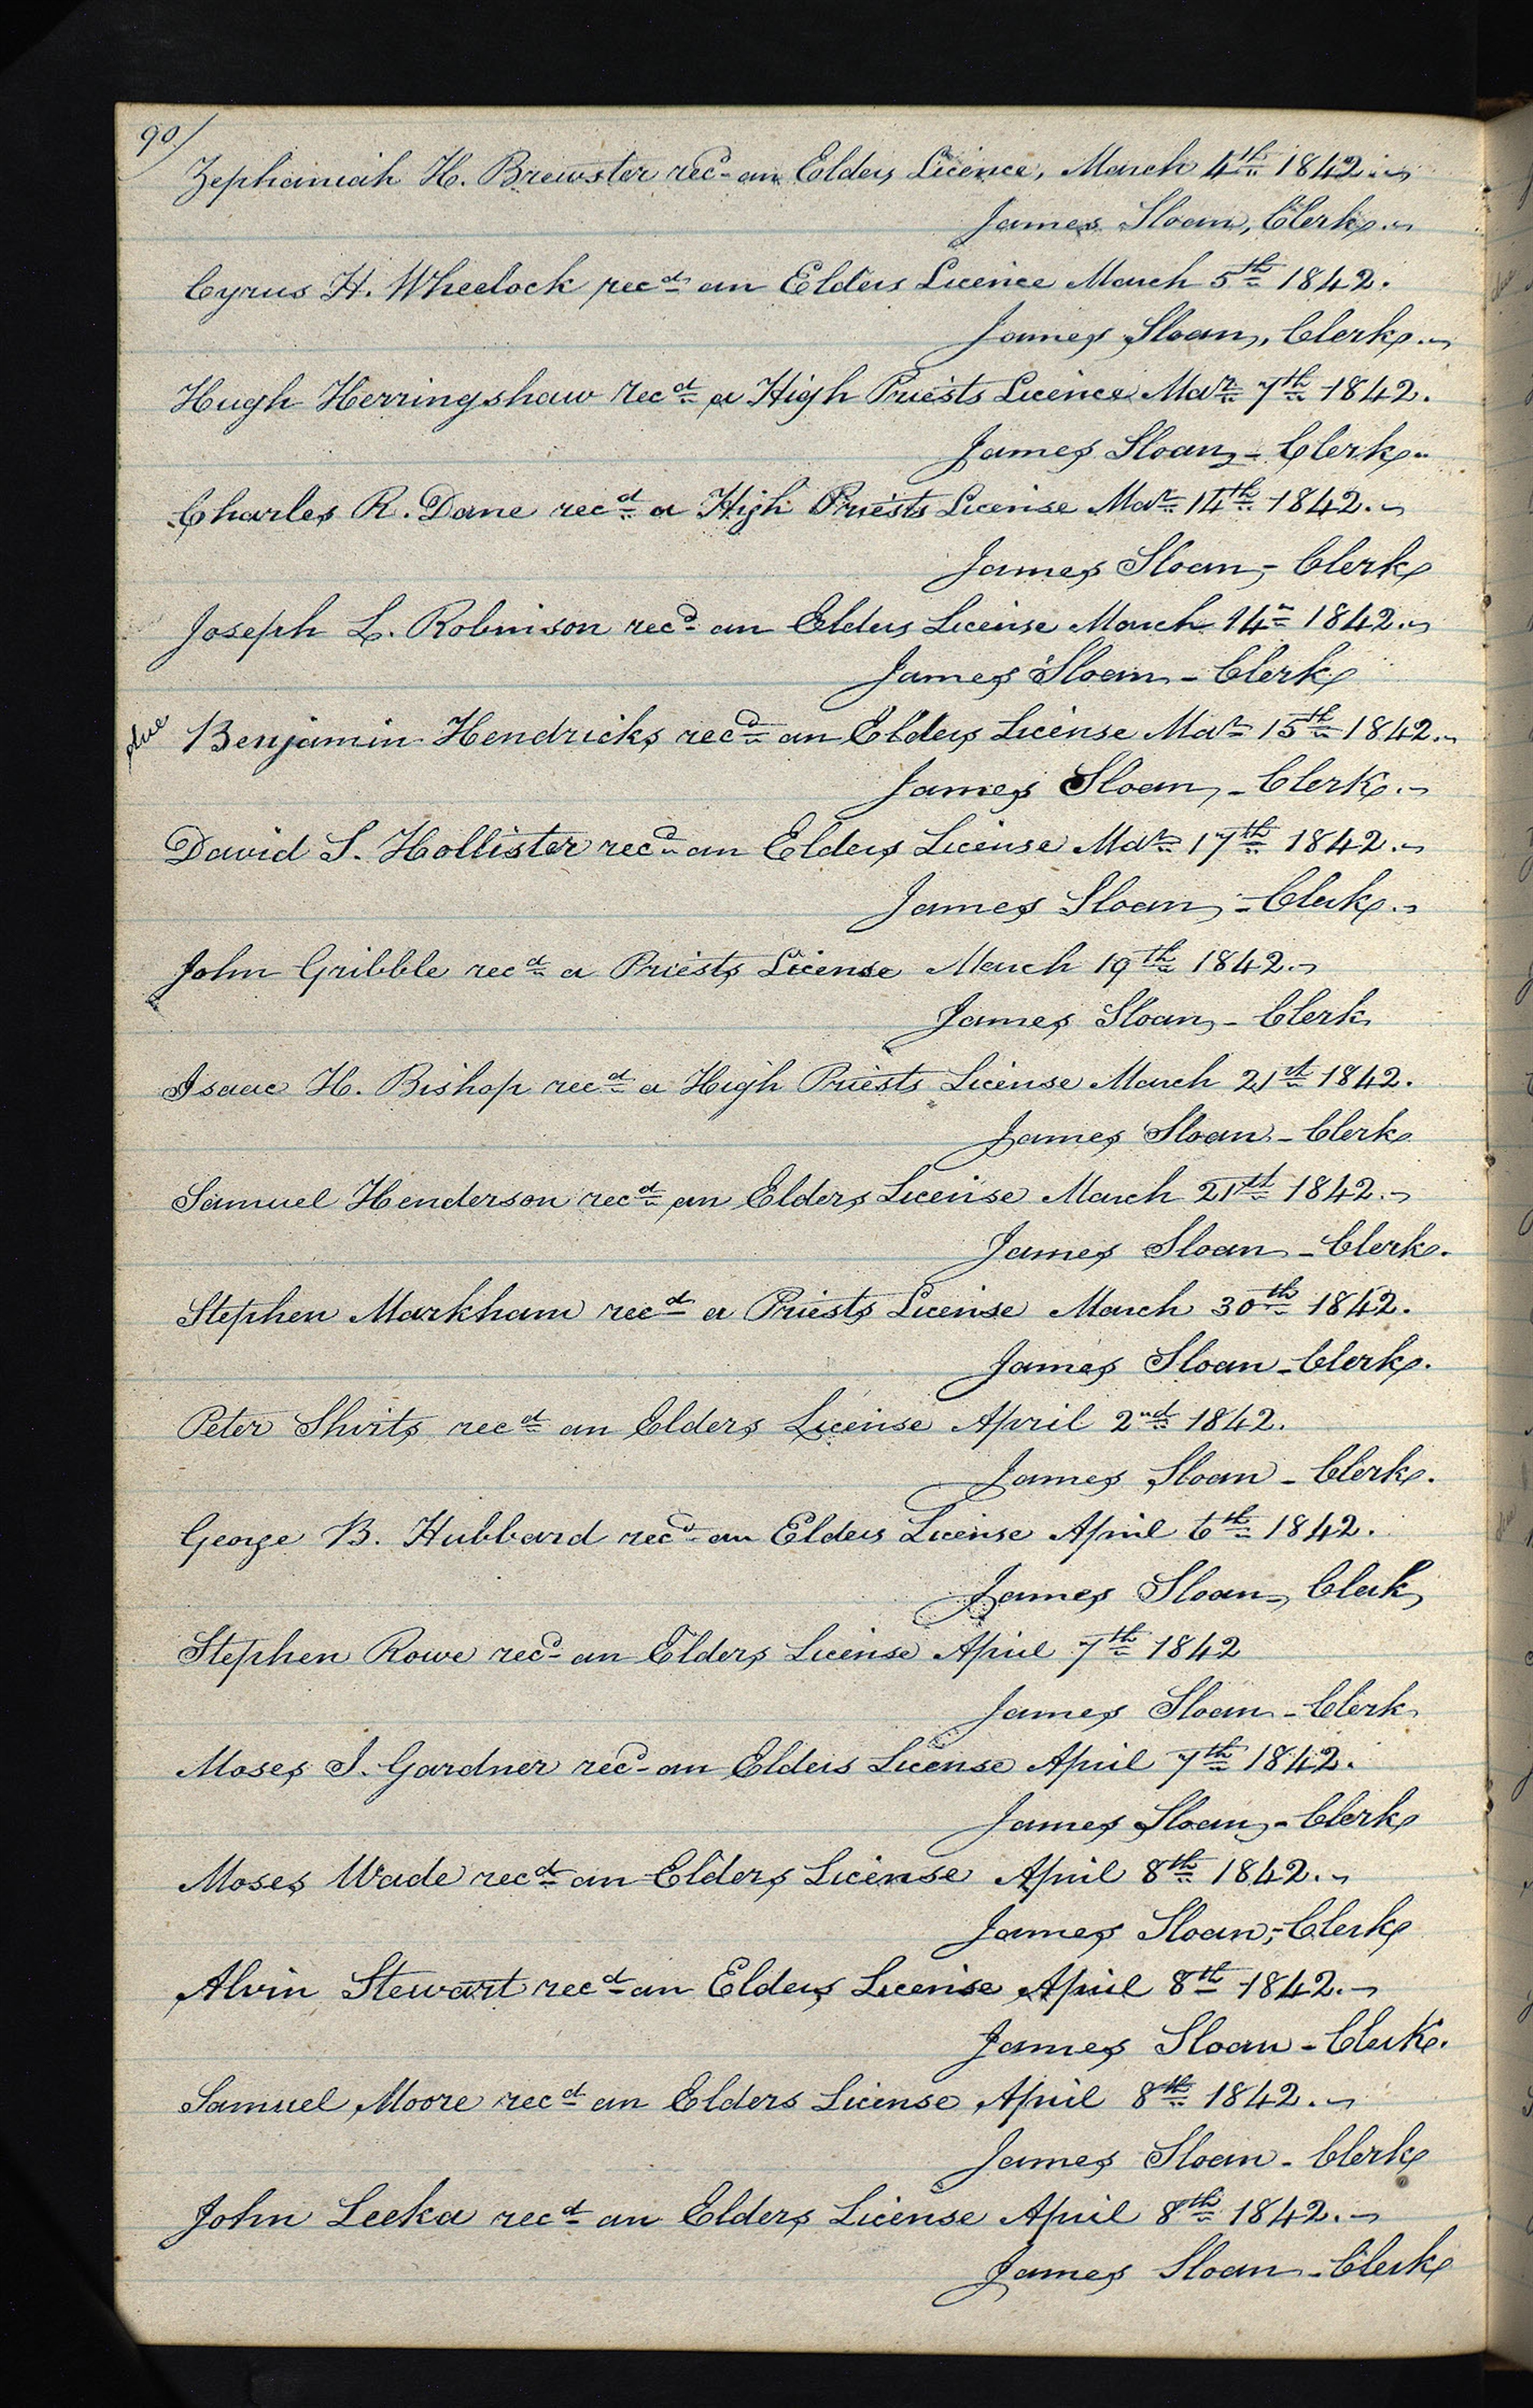 90/
Zephaniah H. Brewster recd an Elders Licence, March 4th 1842.
James Sloan, Clerk.
Cyrus H. Wheelock recd an Elders Licence March 5th 1842.
James Sloan, Clerk.
Hugh Herringshaw recd a High Priests Licence Mar 7th 1842.
James Sloan - Clerk.
Charles R. Dane recd a High Priests License Mar 14th 1842.
James Sloan, - Clerk
Joseph L. Robinson recd an Elders License March 14th 1842.
James Sloan - Clerk
Benjamin Hendricks recd an Elders License Mar 15th 1842.
James Sloan, - Clerk.
David S. Hollister recd an Elders License Mar 17th 1842.
James Sloan, - Clerk.
John Gribble recd a Priests License March 19th 1842.
James Sloan, - Clerk
Isaac H. Bishop recd a High Priests License March 21st 1842.
James Sloan - Clerk
Samuel Henderson recd an Elders License March 21st 1842.
James Sloan - Clerk.
Stephen Markham recd a Priests License March 30th 1842.
James Sloan - Clerk.
Peter Shirts recd an Elders License April 2nd 1842.
James Sloan - Clerk.
George B. Hubbard recd an Elders License April 6th 1842.
James Sloan -, Clerk
Stephen Rowe recd an Elders License April 7th 1842
James Sloan - Clerk
Moses I. Gardner recd an Elders License April 7th 1842.
James Sloan, - Clerk
Moses Wade recd an Elders License April 8th 1842.
James Sloan, - Clerk
Alvin Stewart recd an Elders License April 8th 1842.
James Sloan - Clerk.
Samuel Moore recd an Elders License April 8th 1842.
James Sloan - Clerk
John Leeka recd an Elders License April 8th 1842.
James Sloan - Clerk